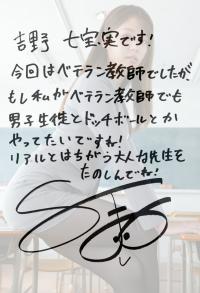 吉野 七宝実です!
今回はベテラン教師でしたが、
もし私がベテラン教師でも
男子生徒とドッチボールとか
やってたいですね!
リアルとはちがう大人な先生を
たのしんでね!